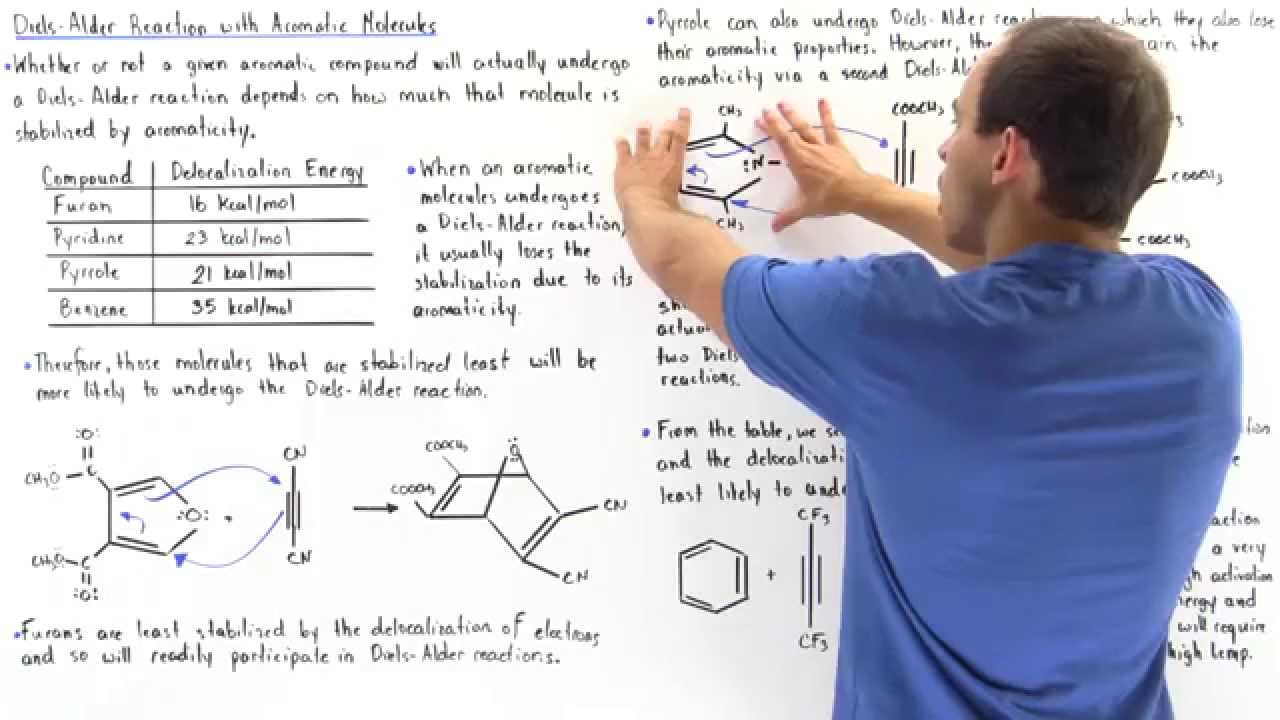 Diels-Alder Reaction with Aromatic Molecules
•Whether or not a given aromatic compound will actually undergo
a Diels-Alder reaction depends on how much that molecule is
stabilized by aromaticity.
Compound Delocalization Energy
Furan 16 Kcal/mol
Pyridine 23 kcal/mol
Pyrrole 21 kcal/mol
Benzene 35 kcal/mol
•When an aromatic
molecules undergoes
a Diels-Alder reaction,
it usually loses the
stabilization due to its
aromaticity.
•Therefore, those molecules that are stabilized least will be
more likely to undergo the Diels-Alder reaction.
:O:
C
CH₃O
CH₃O
C
:O:
:O:
+
CN
CN
COOCH₃
COOCH₃
O
CN
CN
•Furans are least stabilized by the delocalization of electrons
and so will readily participate in Diels-Alder reactions.
•Pyrrole can also undergo Diels-Alder which they also lose
their aromatic properties. However, the the
aromaticity via a second
CH₃
:N-
CH₃
COOCH₃
COOCH₃
COOCH₃
two Diels
reactions.
•From the table, we
and the
least likely to
+
CF₃
CF₃
a very
activation
and
will require
high temp.